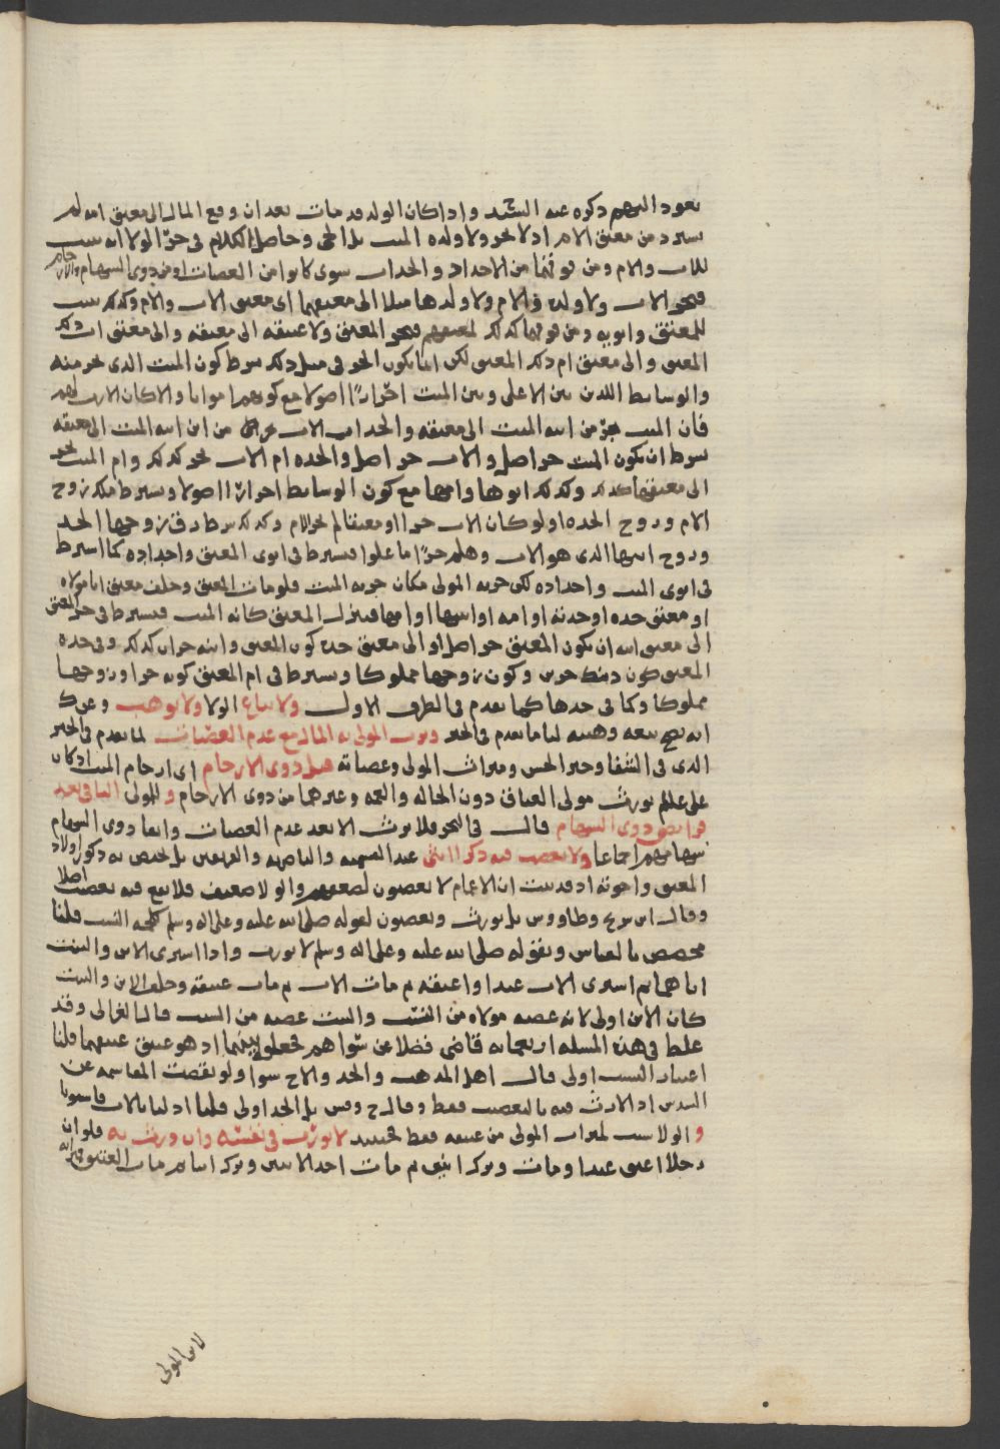 يعود اليهم ذكره عنه السيد واذا كان الولد قد مات بعد ان وقع المال الى معتق امه لم
يسترد من معتق الام اذ لا يجر ولا ولده الميت بل الحي وحاصل الكلام في جر الولا انه يثبت
للاب والام ومن فوقهما من الاجداد والجدات سوى كانوا من العصبات او من ذوي السهام والارحام
فيجر الاب ولا ولده والام ولا ولدها مثلا الى معتقهما اى معتق الاب والام وكذلك يثبت
للمعتق وابويه ومن فوقهما كذلك لمعتقهم فيجر المعتق ولا عتيقه الى معتقه والى معتق اب ذلك
المعتق والى معتق ام ذلك المعتق لكن انما يكون الجر في مثل ذلك بشرط كون الميت الذي يجر منه
والوسايط اللذين بين الاعلى وبين الميت احرارًا اصولا مع كونهم امواتا والا كان الارث لهم
فاب الميت يجر من ابنه الميت الى معتقه والجد اب الاب من ابن ابنه الميت الى معتقه
بشرط ان يكون الميت حر اصل والاب حر اصل والجده ام الاب تجر كذلك وام الميت تجر
الى معتقها كذلك وكذلك ابوها وامها مع كون الوسايط احرارًا اصولا ويشترط ملك زوج
الام وزوج الجده اولو كان الاب حرا او معتقا لم تجر الام وكذلك شرط رق زوجها الجد
وزوج ابنتها الذي هو الاب وهلم جرًا ما علوا فيشترط في ابوي المعتق واجداده كما اشترط
في ابوي الميت واجداده لكن حريه المولى مكان حريه الميت فلو مات المعتق وخلف معتق ابا مولاه
او معتق جده او جدته او امه او ابيها او امها فينزل المعتق كانه الميت فيشترط في جر المعتق
الى معتق ابيه ان يكون المعتق حر اصل او الى معتق جده كون المعتق وابنه حران كذلك وفي جده
المعتق كون ذينك حرين وكون زوجها مملوكا ويشترط في ام المعتق كونه حرا وزوجها
مملوكا وكما في جدها كما تقدم في الطرف الاول ولا يباع الولا ولا يوهب وعن ك
انه يصح بيعه وهبته لنا ما تقدم في الخبر ويرث المولى به المال مع عدم العصبات لما تقدم في الخبر
الذي في الشفا وخبر الحسن وميراث المولى وعصباته قبل ذوي الارحام اى ارحام الميت اذ كان
علي عليلم يورث مولى العتاق دون الخاله والعمه وغيرهما من ذوي الارحام و للمولى الباقي بعد
فرايض ذوي السهام قال في البحر فلا يرث الا بعد عدم العصبات وايفا ذوي السهام
سهامهم اجماعا ولا يعصب فيه ذكر انثى عند القسميه والناصريه والفريقين بل يختص به ذكور اولاد
المعتق واخوته اذ قد ثبت ان الاعمام لا يعصبون لضعفهم والولا ضعيف فلا يقع فيه تعصيب اصلا
وقال ابن سريج وطاووس بل يورث ويعصبون لقوله صلى الله عليه وعلى اله وسلم كلحمه النسب قلنا
مخصص بالقياس وبقوله صلى الله عليه وعلى اله وسلم لا يورث واذا اشترى الابن والبنت
اباهما ثم اشترى الاب عبدا واعتقه ثم مات الاب ثم مات عتيقه وخلف الابن والبنت
كان الابن اولى لانه عصبه مولاه من النسب والبنت عصبه من السبب قال الغزالي وقد
غلط في هذه المسله اربعمايه قاضي فضلا عن سواهم فجعلوه بينهما اذ هو عتيق عتيقهما قلنا
اعتبار النسب اولى قال اهل المذهب والجد والاخ سوا ولو نقصت المقاسمه عن
السدس اذ الارث فيه بالتعصيب فقط وقال ح وش بل الجد اولى قلنا ادليا بالاب فاستويا
و الولا سبب لميراث المولى من عتيقه فقط فحينئذ لا يورث في نفسه وان ورث به فلو ان
رجلا اعتق عبدا ومات وترك ابنين ثم مات احد الابنين وترك ابنا ثم مات العتيق فميراثه
لابن المولى